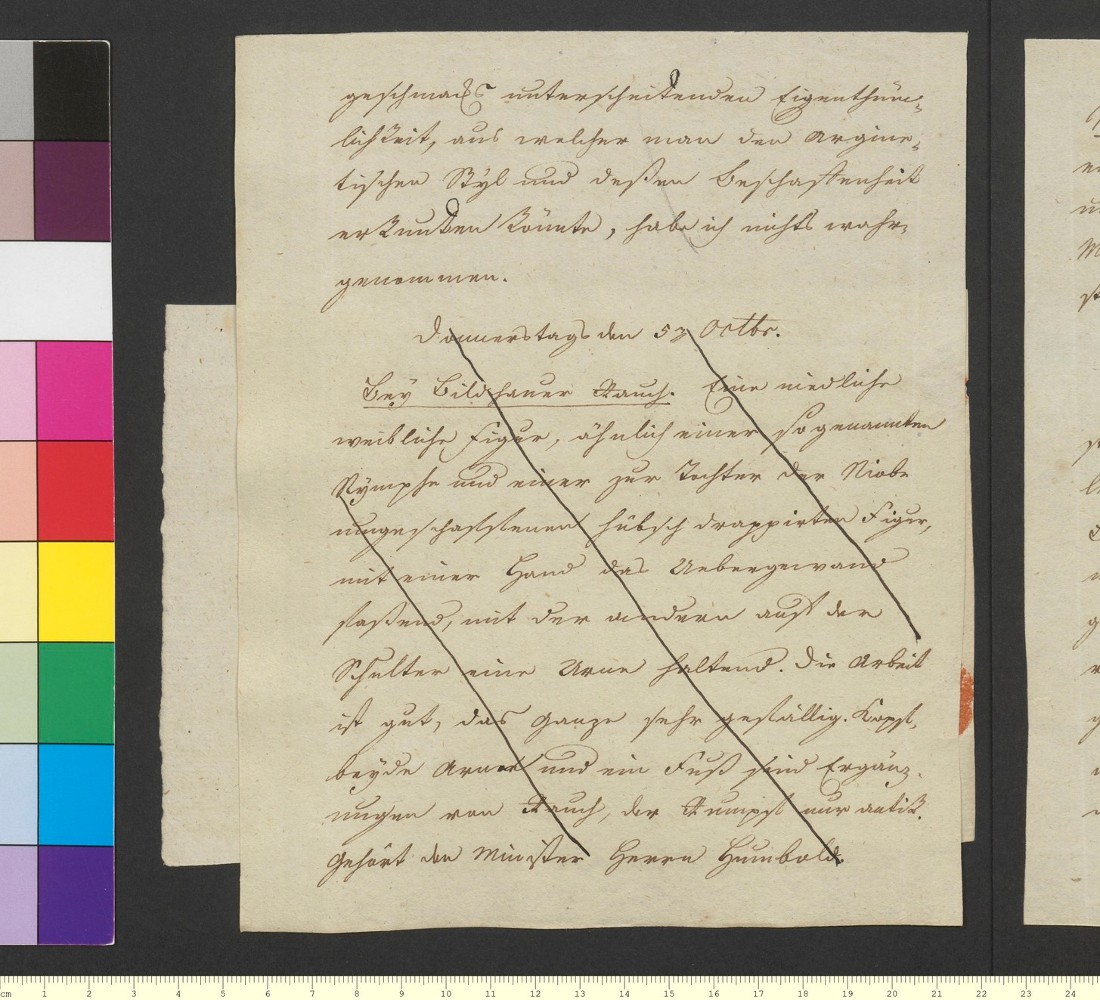 geschmacks unterscheidenden Eigenthüm-
lichkeit, aus welcher man den Aegine-
tischen Styl und deßen Beschaffenheit
erkunden könnte, habe ich nichts wahr-
genommen.
Donnerstags den 53 Octbr.
Bey Bildhauer Rauch. Eine niedliche
weibliche Figur, ähnlich einer sogenannten
Nymphe und einer zur Tochter der Niobe
umgeschaffenen hübsch drappirten Figur,
mit einer Hand das Uebergewand
faßend, mit der andern auf der
Schulter eine Urne haltend. Die Arbeit
ist gut, das Ganze sehr gefällig. Kopf,
beyde Arme und ein Fuß sind Ergänz-
ungen von Rauch, der Rumpf nur antik.
Gehört dem Minister Herrn Humbold.
cm 1 2 3 4 5 6 7 8 9 10 11 12 13 14 15 16 17 18 19 20 21 22 23 24